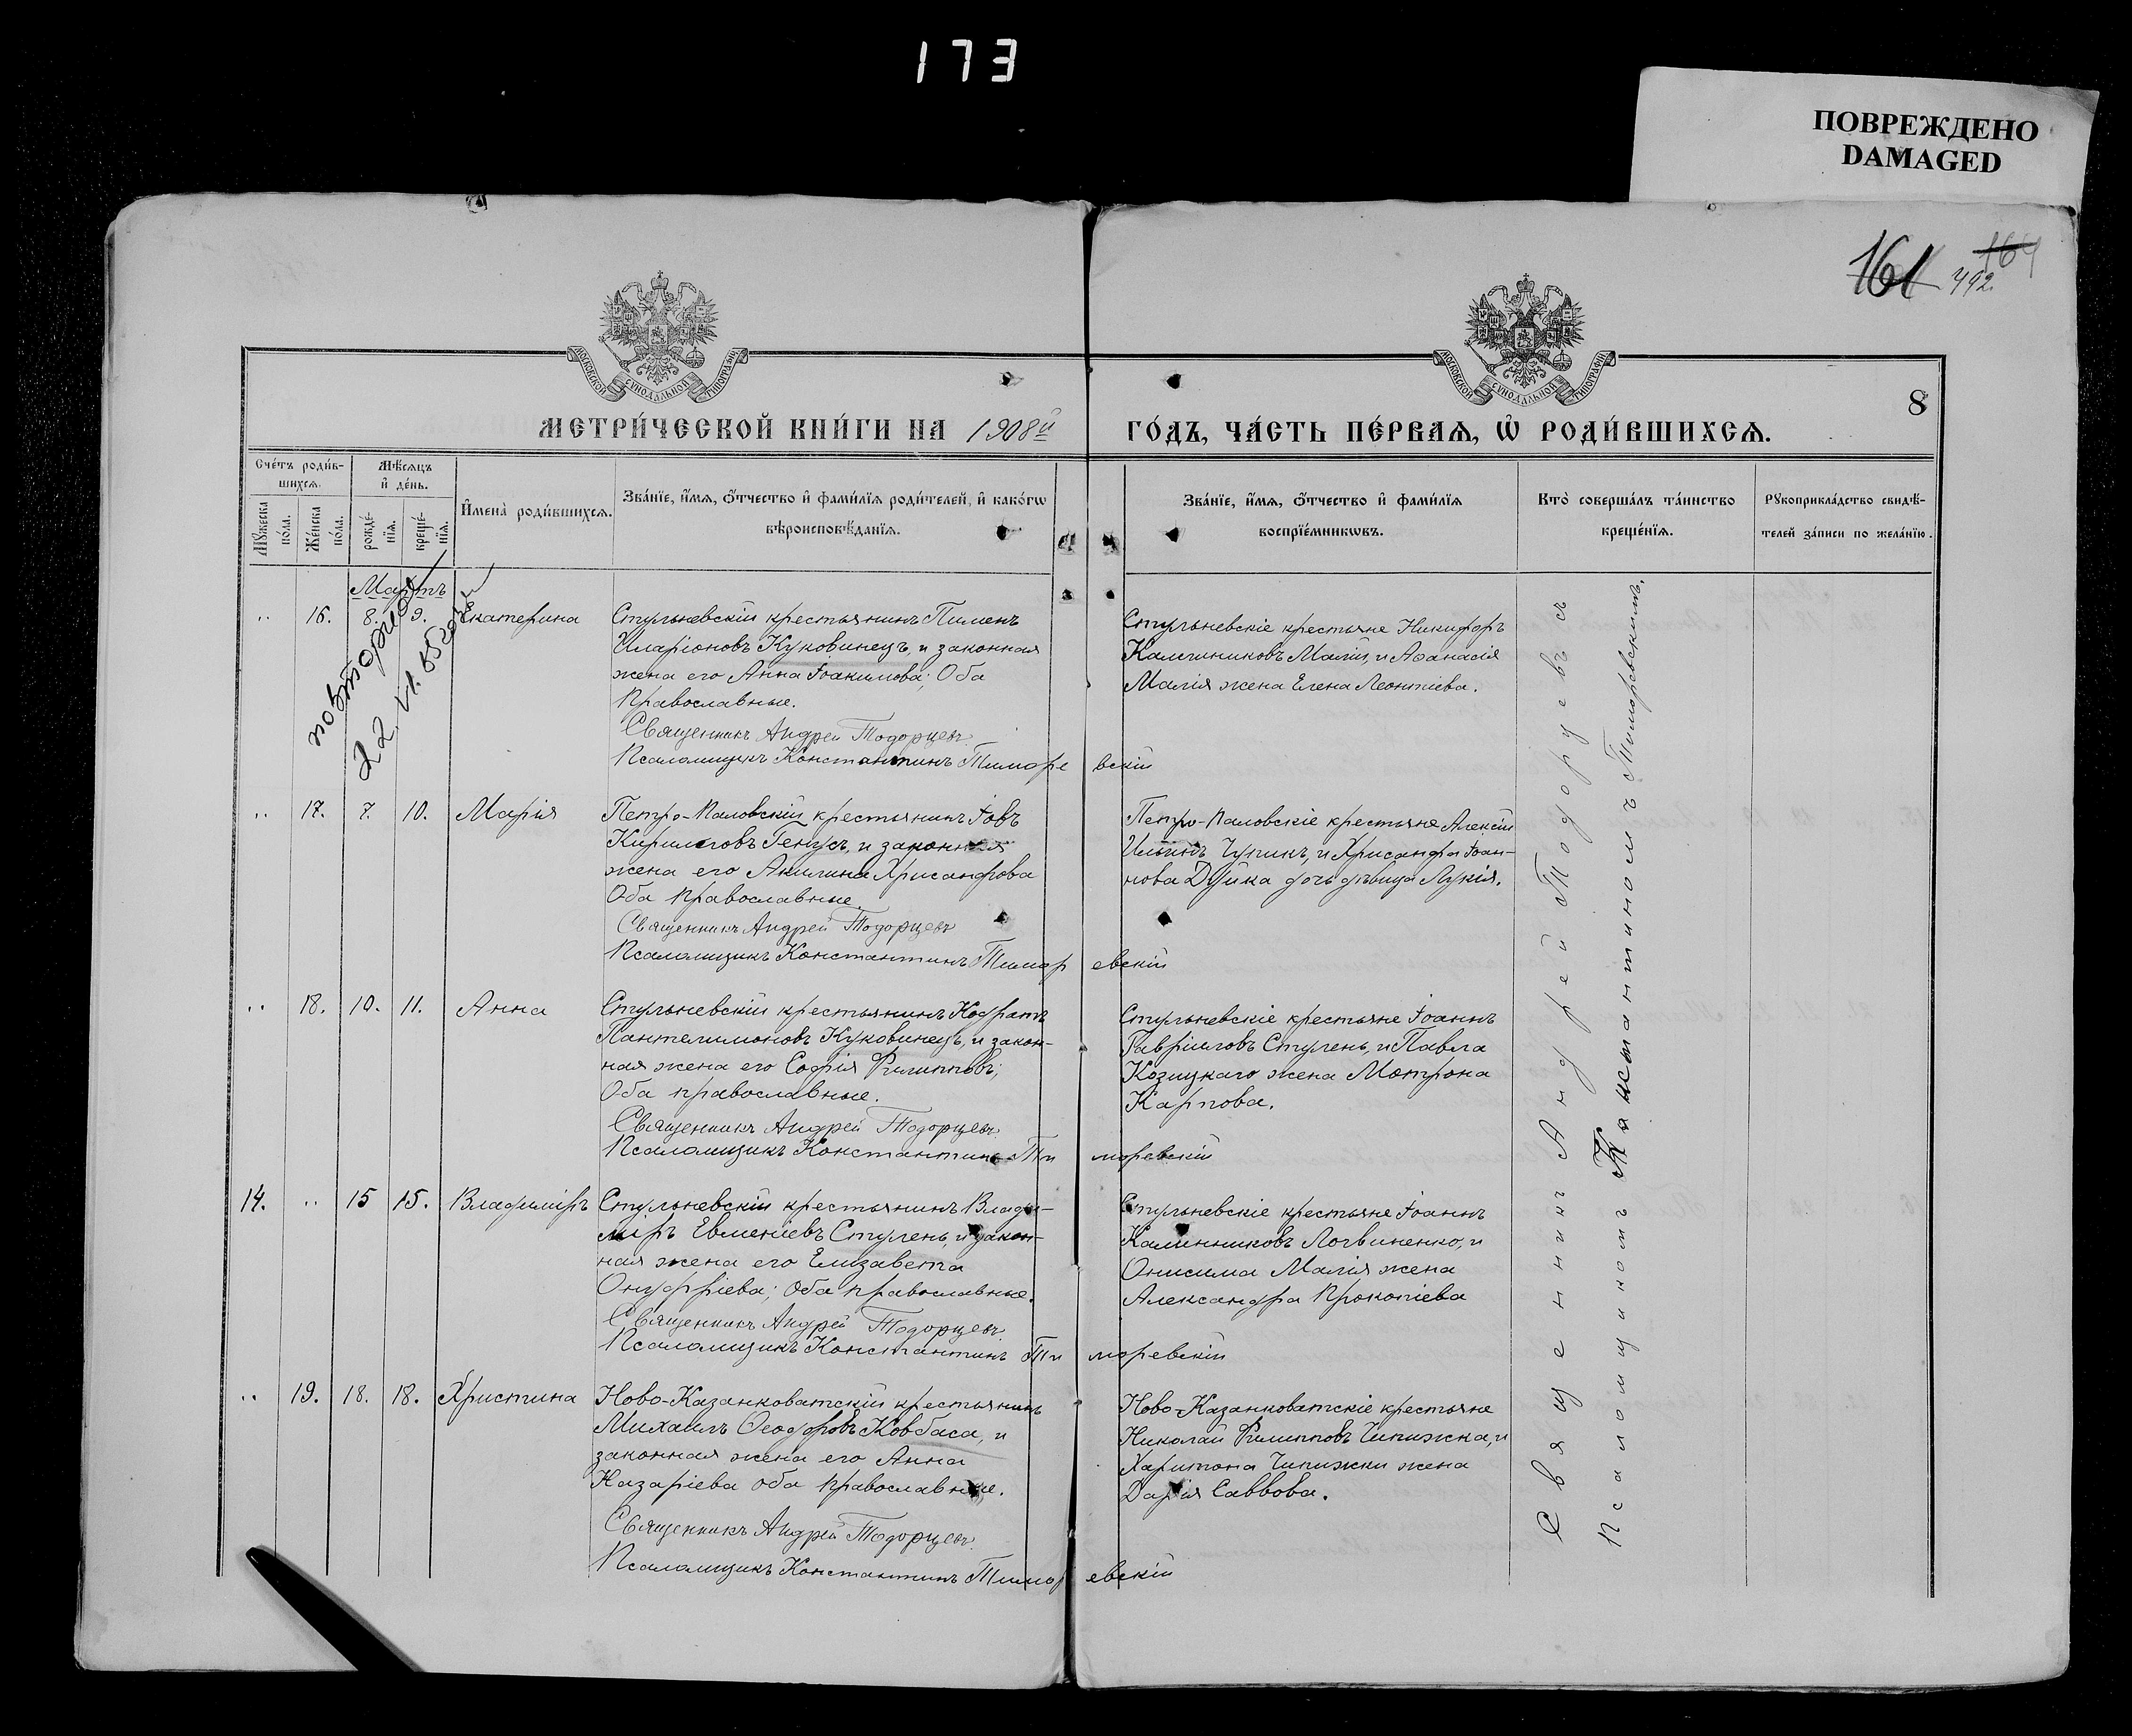 173
ПОВРЕЖДЕНО
DAMAGED
161 164
492.
МОСКОВСКОЙ СѴНОДАЛЬНОЙ ТИПОГРАФІИ
МОСКОВСКОЙ СѴНОДАЛЬНОЙ ТИПОГРАФІИ
8
МЕТРИ́ЧЕСКОЙ КНИ́ГИ НА 1908й ГО́ДЪ, ЧА́СТЬ ПЕ́РВАѦ, Ѡ РОДИ́ВШИХСѦ.
Сче́тъ роди́в-
шихсѧ.
Мѣ́сѧцъ
и҆ де́нь.
Мꙋ́жеска по́ла.
Же́нска по́ла.
рожде́-
нїѧ.
креще́-
нїѧ.
И҆мена̀ роди́вшихсѧ.
Зва́нїе, и҆́мѧ, ѻ҆́тчество и҆ фами́лїѧ роди́телей, и҆ како́гѡ
вѣроисповѣ́данїѧ.
Зва́нїе, и҆́мѧ, ѻ҆́тчество и҆ фами́лїѧ
воспрїе́мникѡвъ.
Кто̀ соверша́лъ та́инство
креще́нїѧ.
Рꙋкоприкла́дство свидѣ́-
телей за́писи по жела́нїю.
Мартъ
повторно
22 VI. 55
.. 16. 8. 9. Екатерина
Стульневскій крестьянинъ Пименъ
Иларіоновъ Куковинецъ, и законная
жена его Анна Іоакимова; Оба
Православные.
Священникъ Андрей Тодорцевъ
Псаломщикъ Константинъ Тиморевскій
Стульневскіе крестьяне Никифоръ
Калинниковъ Малій, и Аѳанасія
Малія жена Елена Леонтіева.
.. 17. 7. 10. Марія
Петро-Паловскій крестьянинъ Іовъ
Кирилловъ Генусъ, и законная
жена его Акилина Хрисанфова
Оба Православные.
Священникъ Андрей Тодорцевъ
Псаломщикъ Константинъ Тиморевскій
Петро-Паловскіе крестьяне Алексій
Ильинъ Чупикъ, и Хрисанфа Іоан-
нова Дуйка дочь дѣвица Лукія.
.. 18. 10. 11. Анна
Стульневскій крестьянинъ Кодратъ
Пантелимоновъ Куковинецъ, и закон-
ная жена его Софія Филиппова;
Оба православные.
Священникъ Андрей Тодорцевъ
Псаломщикъ Константинъ Тиморевскій
Стульневскіе крестьяне Іоаннъ
Гавріиловъ Ступень, и Павла
Козицкаго жена Мотрона
Карпова.
14. .. 15 15. Владиміръ
Стульневскій крестьянинъ Влади-
міръ Евменіевъ Ступень, и закон-
ная жена его Елизавета
Онуфріева; Оба православные.
Священникъ Андрей Тодорцевъ
Псаломщикъ Константинъ Тиморевскій
Стульневскіе крестьяне Іоаннъ
Калинниковъ Логвиненко, и
Онисима Малія жена
Александра Прокопіева
.. 19. 18. 18. Христина
Ново-Казанковатскій крестьянинъ
Михаилъ Ѳеодоровъ Ковбаса, и
законная жена его Анна
Назаріева оба православные.
Священникъ Андрей Тодорцевъ
Псаломщикъ Константинъ Тиморевскій
Ново-Казанковатскіе крестьяне
Николай Филипповъ Чипижка, и
Харитона Чипижки жена
Дарія Саввова.
Священникъ Андрей Тодорцевъ съ
Псаломщикомъ Константиномъ Тиморевскимъ.